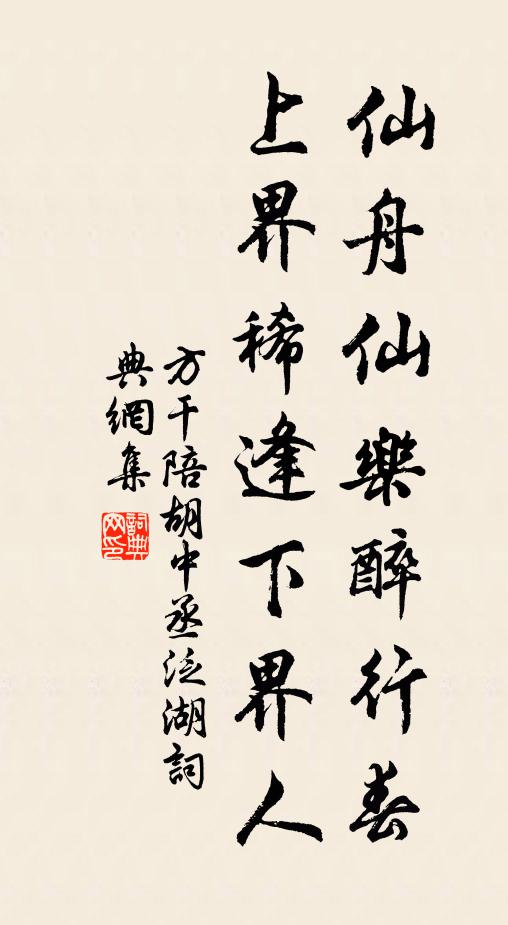 仙舟仙樂醉行春
上界稀逢下界人
方干陪胡中丞泛湖詞
典網集
詞典
网印